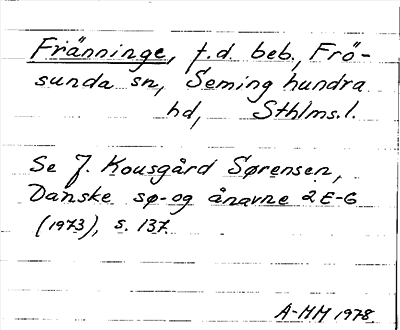 Fränninge, f.d. beb., Frö-
sunda sn, Seming hundra
hd, Sthlms.l.
Se J. Kousgård Sørensen,
Danske sø- og ånavne 2 E-G
(1973), s. 137.
A-MM 1978